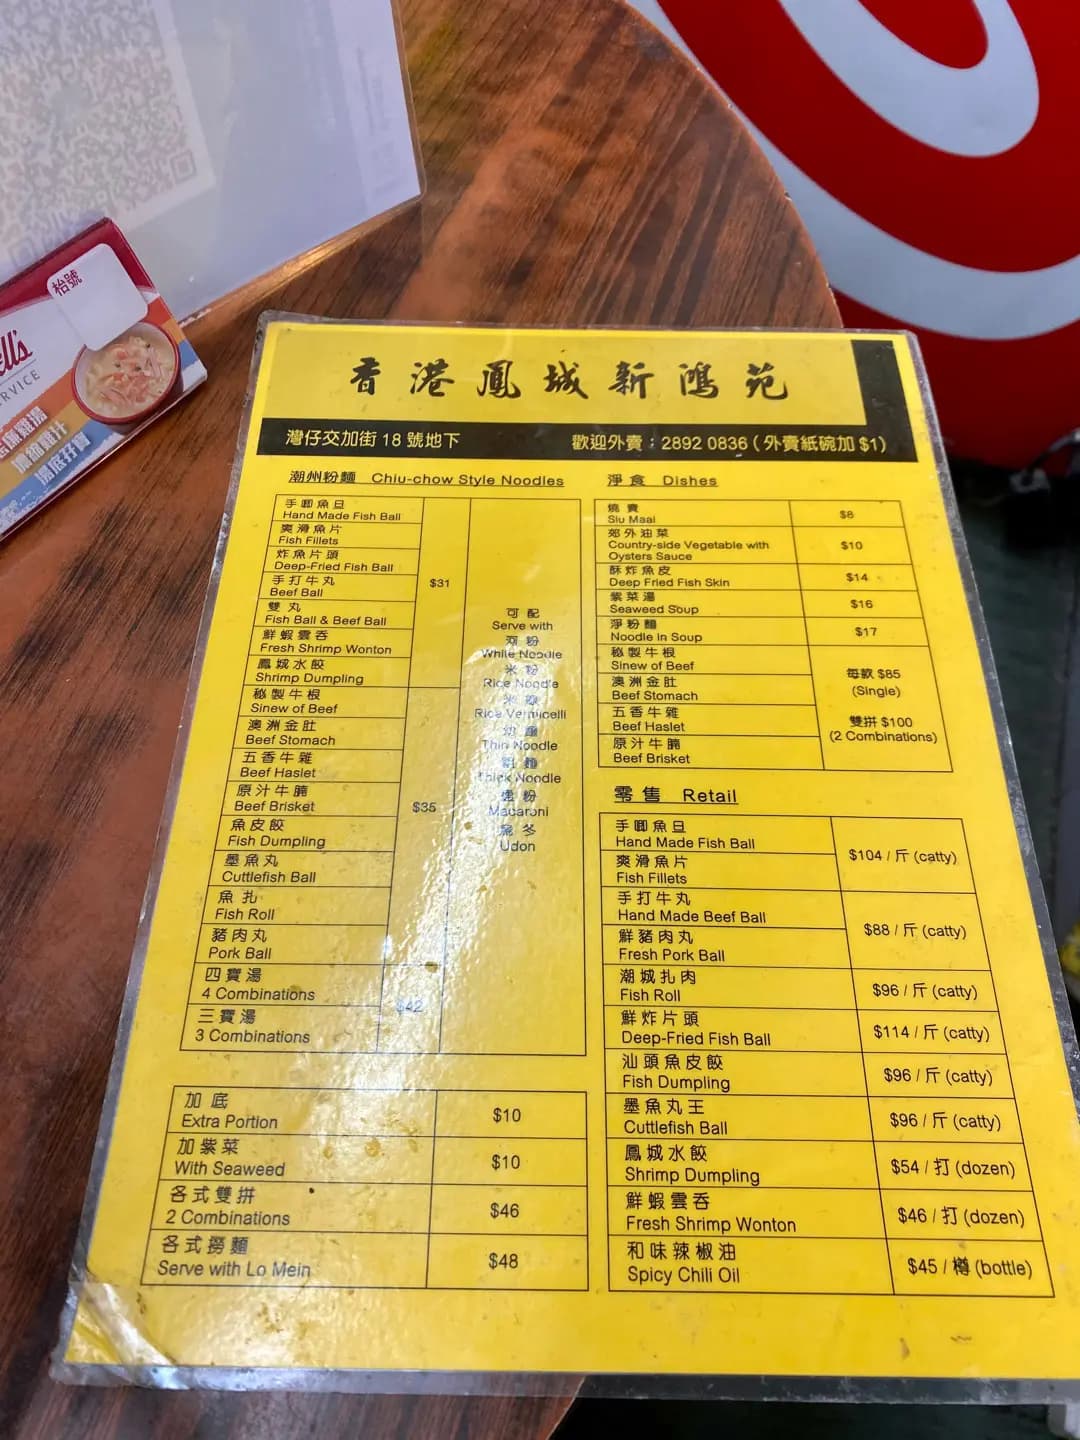 枱號
ell's
RVICE
濃縮雞汁
湯底孖寶
香港鳳城新鴻苑
灣仔交加街 18 號地下
歡迎外賣：2892 0836 ( 外賣紙碗加 $1)
潮州粉麵 Chiu-chow Style Noodles
手唧魚旦
Hand Made Fish Ball
爽滑魚片
Fish Fillets
炸魚片頭
Deep-Fried Fish Ball
手打牛丸
Beef Ball
雙丸
Fish Ball & Beef Ball
鮮蝦雲吞
Fresh Shrimp Wonton
鳳城水餃
Shrimp Dumpling
$31
秘製牛根
Sinew of Beef
澳洲金肚
Beef Stomach
五香牛雜
Beef Haslet
原汁牛腩
Beef Brisket
魚皮餃
Fish Dumpling
墨魚丸
Cuttlefish Ball
魚扎
Fish Roll
豬肉丸
Pork Ball
$35
四寶湯
4 Combinations
三寶湯
3 Combinations
$42
可配
Serve with
河粉
White Noodle
米粉
Rice Noodle
米線
Rice Vermicelli
幼麵
Thin Noodle
粗麵
Thick Noodle
通粉
Macaroni
烏冬
Udon
加底
Extra Portion
$10
加紫菜
With Seaweed
$10
各式雙拼
2 Combinations
$46
各式撈麵
Serve with Lo Mein
$48
淨食 Dishes
燒賣
Siu Maai
$8
郊外油菜
Country-side Vegetable with
Oysters Sauce
$10
酥炸魚皮
Deep Fried Fish Skin
$14
紫菜湯
Seaweed Soup
$16
淨粉麵
Noodle In Soup
$17
秘製牛根
Sinew of Beef
澳洲金肚
Beef Stomach
五香牛雜
Beef Haslet
原汁牛腩
Beef Brisket
每款 $85
(Single)
雙拼 $100
(2 Combinations)
零售 Retail
手唧魚旦
Hand Made Fish Ball
爽滑魚片
Fish Fillets
$104 / 斤 (catty)
手打牛丸
Hand Made Beef Ball
鮮豬肉丸
Fresh Pork Ball
$88 / 斤 (catty)
潮城扎肉
Fish Roll
$96 / 斤 (catty)
鮮炸片頭
Deep-Fried Fish Ball
$114 / 斤 (catty)
汕頭魚皮餃
Fish Dumpling
$96 / 斤 (catty)
墨魚丸王
Cuttlefish Ball
$96 / 斤 (catty)
鳳城水餃
Shrimp Dumpling
$54 / 打 (dozen)
鮮蝦雲吞
Fresh Shrimp Wonton
$46 / 打 (dozen)
和味辣椒油
Spicy Chili Oil
$45 / 樽 (bottle)